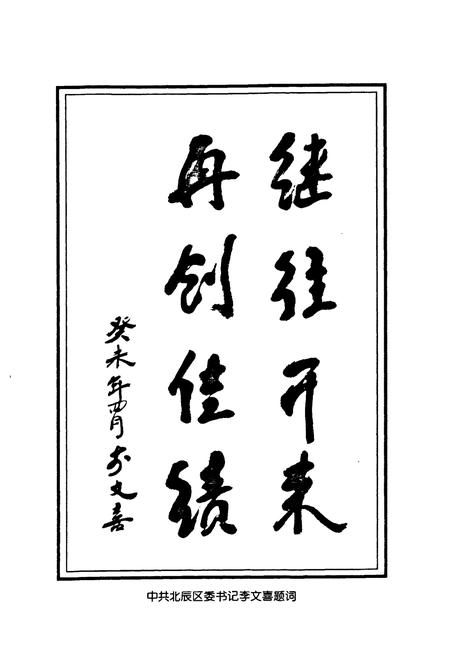 继往开来
再创佳绩
癸未年四月 李文喜
中共北辰区委书记李文喜题词